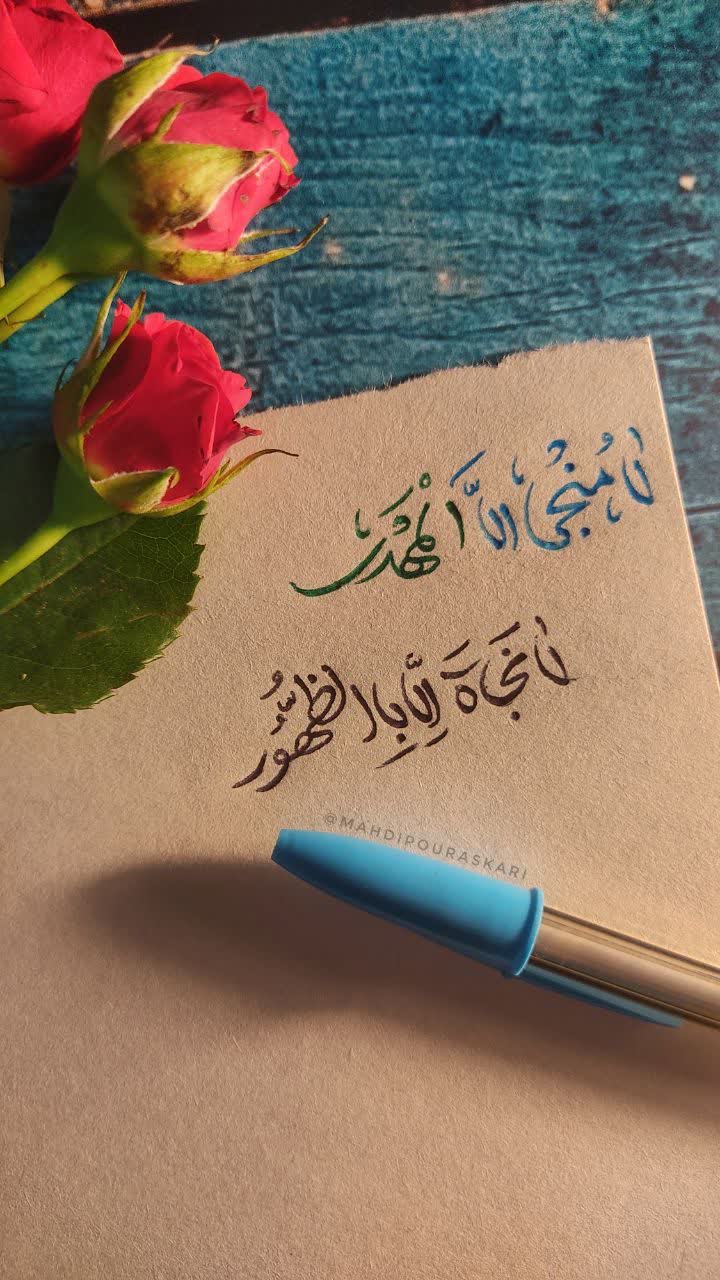 لا مُنْجی اِلاَّ الْمَهْدی
لا نَجاةَ اِلّا بِالظُّهُور
@MAHDIPOURASKARI